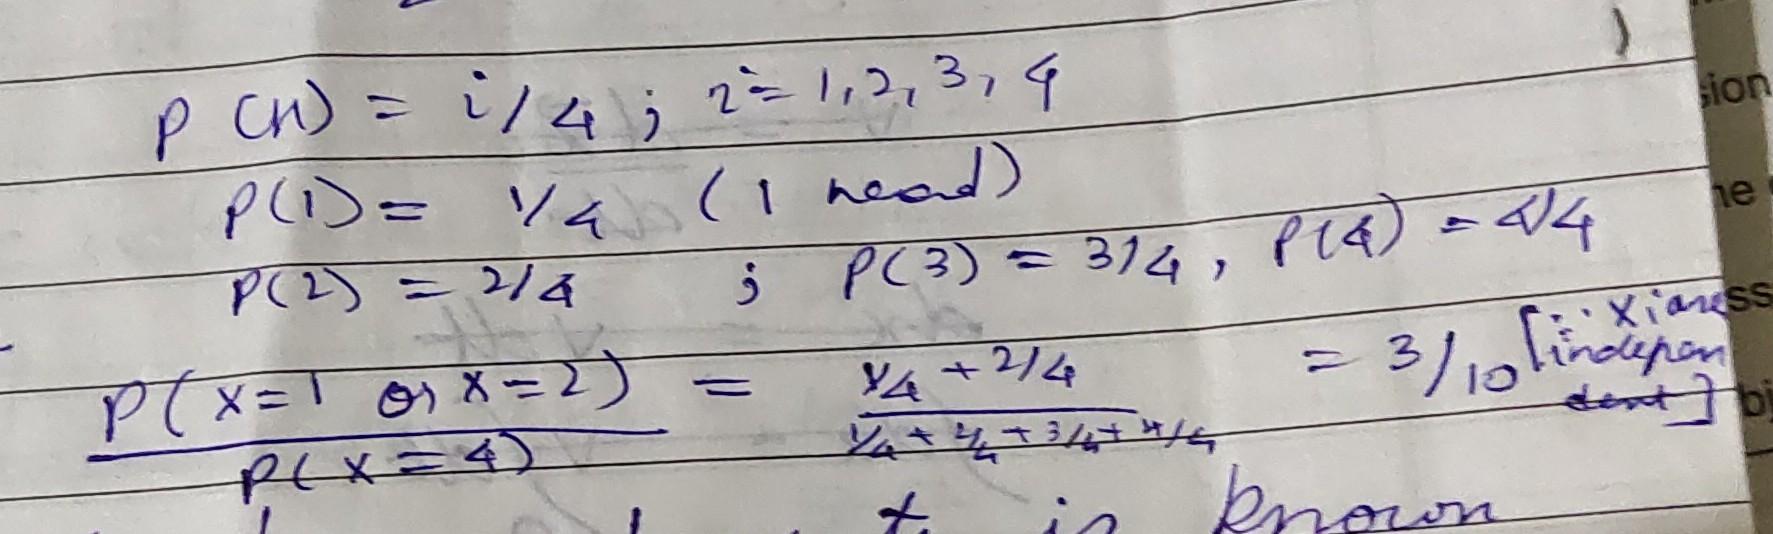 )
P(x) = i/4 ; i = 1, 2, 3, 4
sion
P(1) = 1/4 (1 head)
he
P(2) = 2/4 ; P(3) = 3/4, P(4) = 4/4
P(X=1 or X=2) = 1/4 + 2/4 = 3/10 [∵ Xi are
ss
P(X=4) 1/4 + 2/4 + 3/4 + 4/4 indepen
dent]
bi
is known